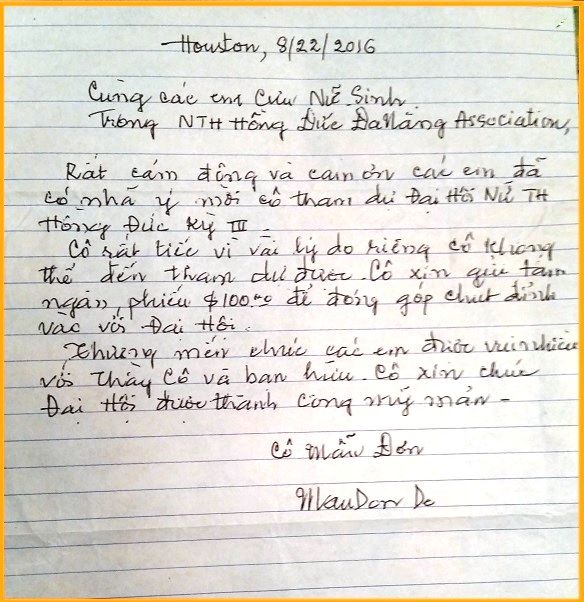 Houston, 8/22/2016
Cùng các em Cựu Nữ Sinh
Trong NTH Hồng Đức ĐaNẵng Association,
Rất cám động và cám ơn các em đã
có nhã ý mời cô tham dự Đại Hội Nữ TH
Hồng Đức kỳ III -
Cô rất tiếc vì vài lý do riêng cô không
thể đến tham dự được. Cô xin gửi tấm
ngân phiếu $100.00 để đóng góp chút đỉnh
vào với Đại Hội.
Thương mến chúc các em được vui nhiều
với Thầy Cô và bạn hữu. Cô xin chúc
Đại Hội được thành công mỹ mãn -
Cô Mẫu Đơn
MauDon Do